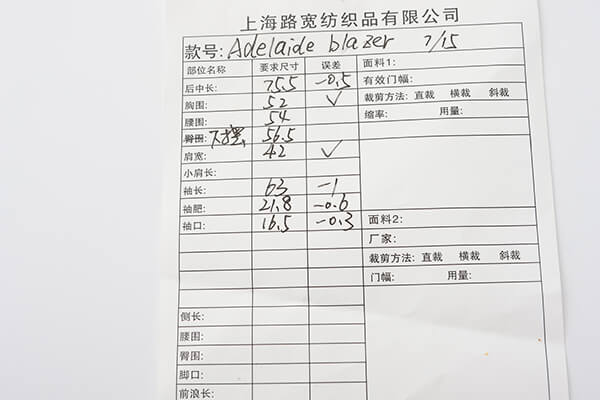 上海路宽纺织品有限公司
款号: Adelaide blazer 7/15
部位名称 要求尺寸 误差 面料1:
后中长: 75.5 -0.5 有效门幅:
胸围: 52 ✓ 裁剪方法: 直裁 横裁 斜裁
腰围: 54 缩率: 用量:
臀围: 下摆 56.5
肩宽: 42 ✓
小肩长:
袖长: 63 -1
袖肥: 21.8 -0.6 面料2:
袖口: 16.5 -0.3 厂家:
裁剪方法: 直裁 横裁 斜裁
门幅: 用量:
侧长:
腰围:
臀围:
脚口:
前浪长: